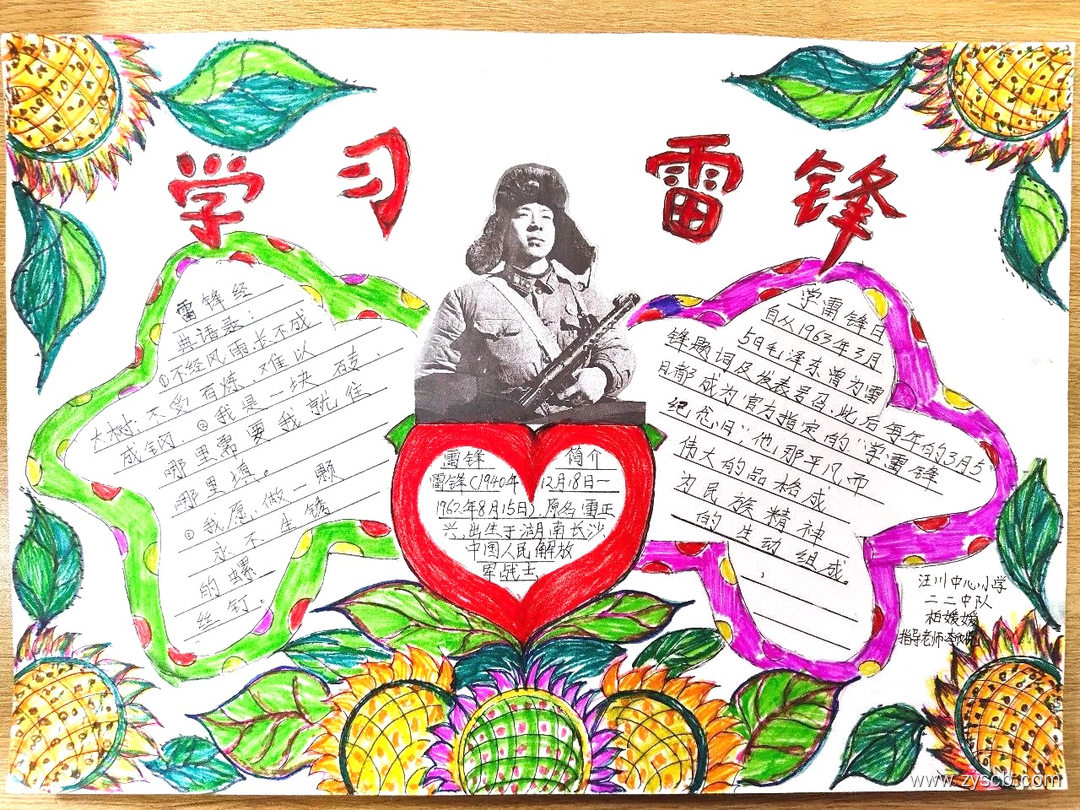 学习雷锋
雷锋经
典语录:
①不经风雨,长不成
大树;不受百炼,难以
成钢。②我是一块砖,
哪里需要我就住
哪里填。
③我愿做一颗
永不生锈
的螺
丝钉。
雷锋简介
雷锋(1940年12月18日一
1962年8月15日),原名雷正
兴,出生于湖南长沙
中国人民解放
军战士
学雷锋日
自从1963年3月
5日毛泽东曾为雷
锋题词及发表号召,此后每年的3月5
日都成为官方指定的“学雷锋
纪念日”,他那平凡而
伟大的品格成
为民族精神
的生动组成。
汪川中心小学
二二中队
柏媛媛
指导老师:
www.zyscb.com